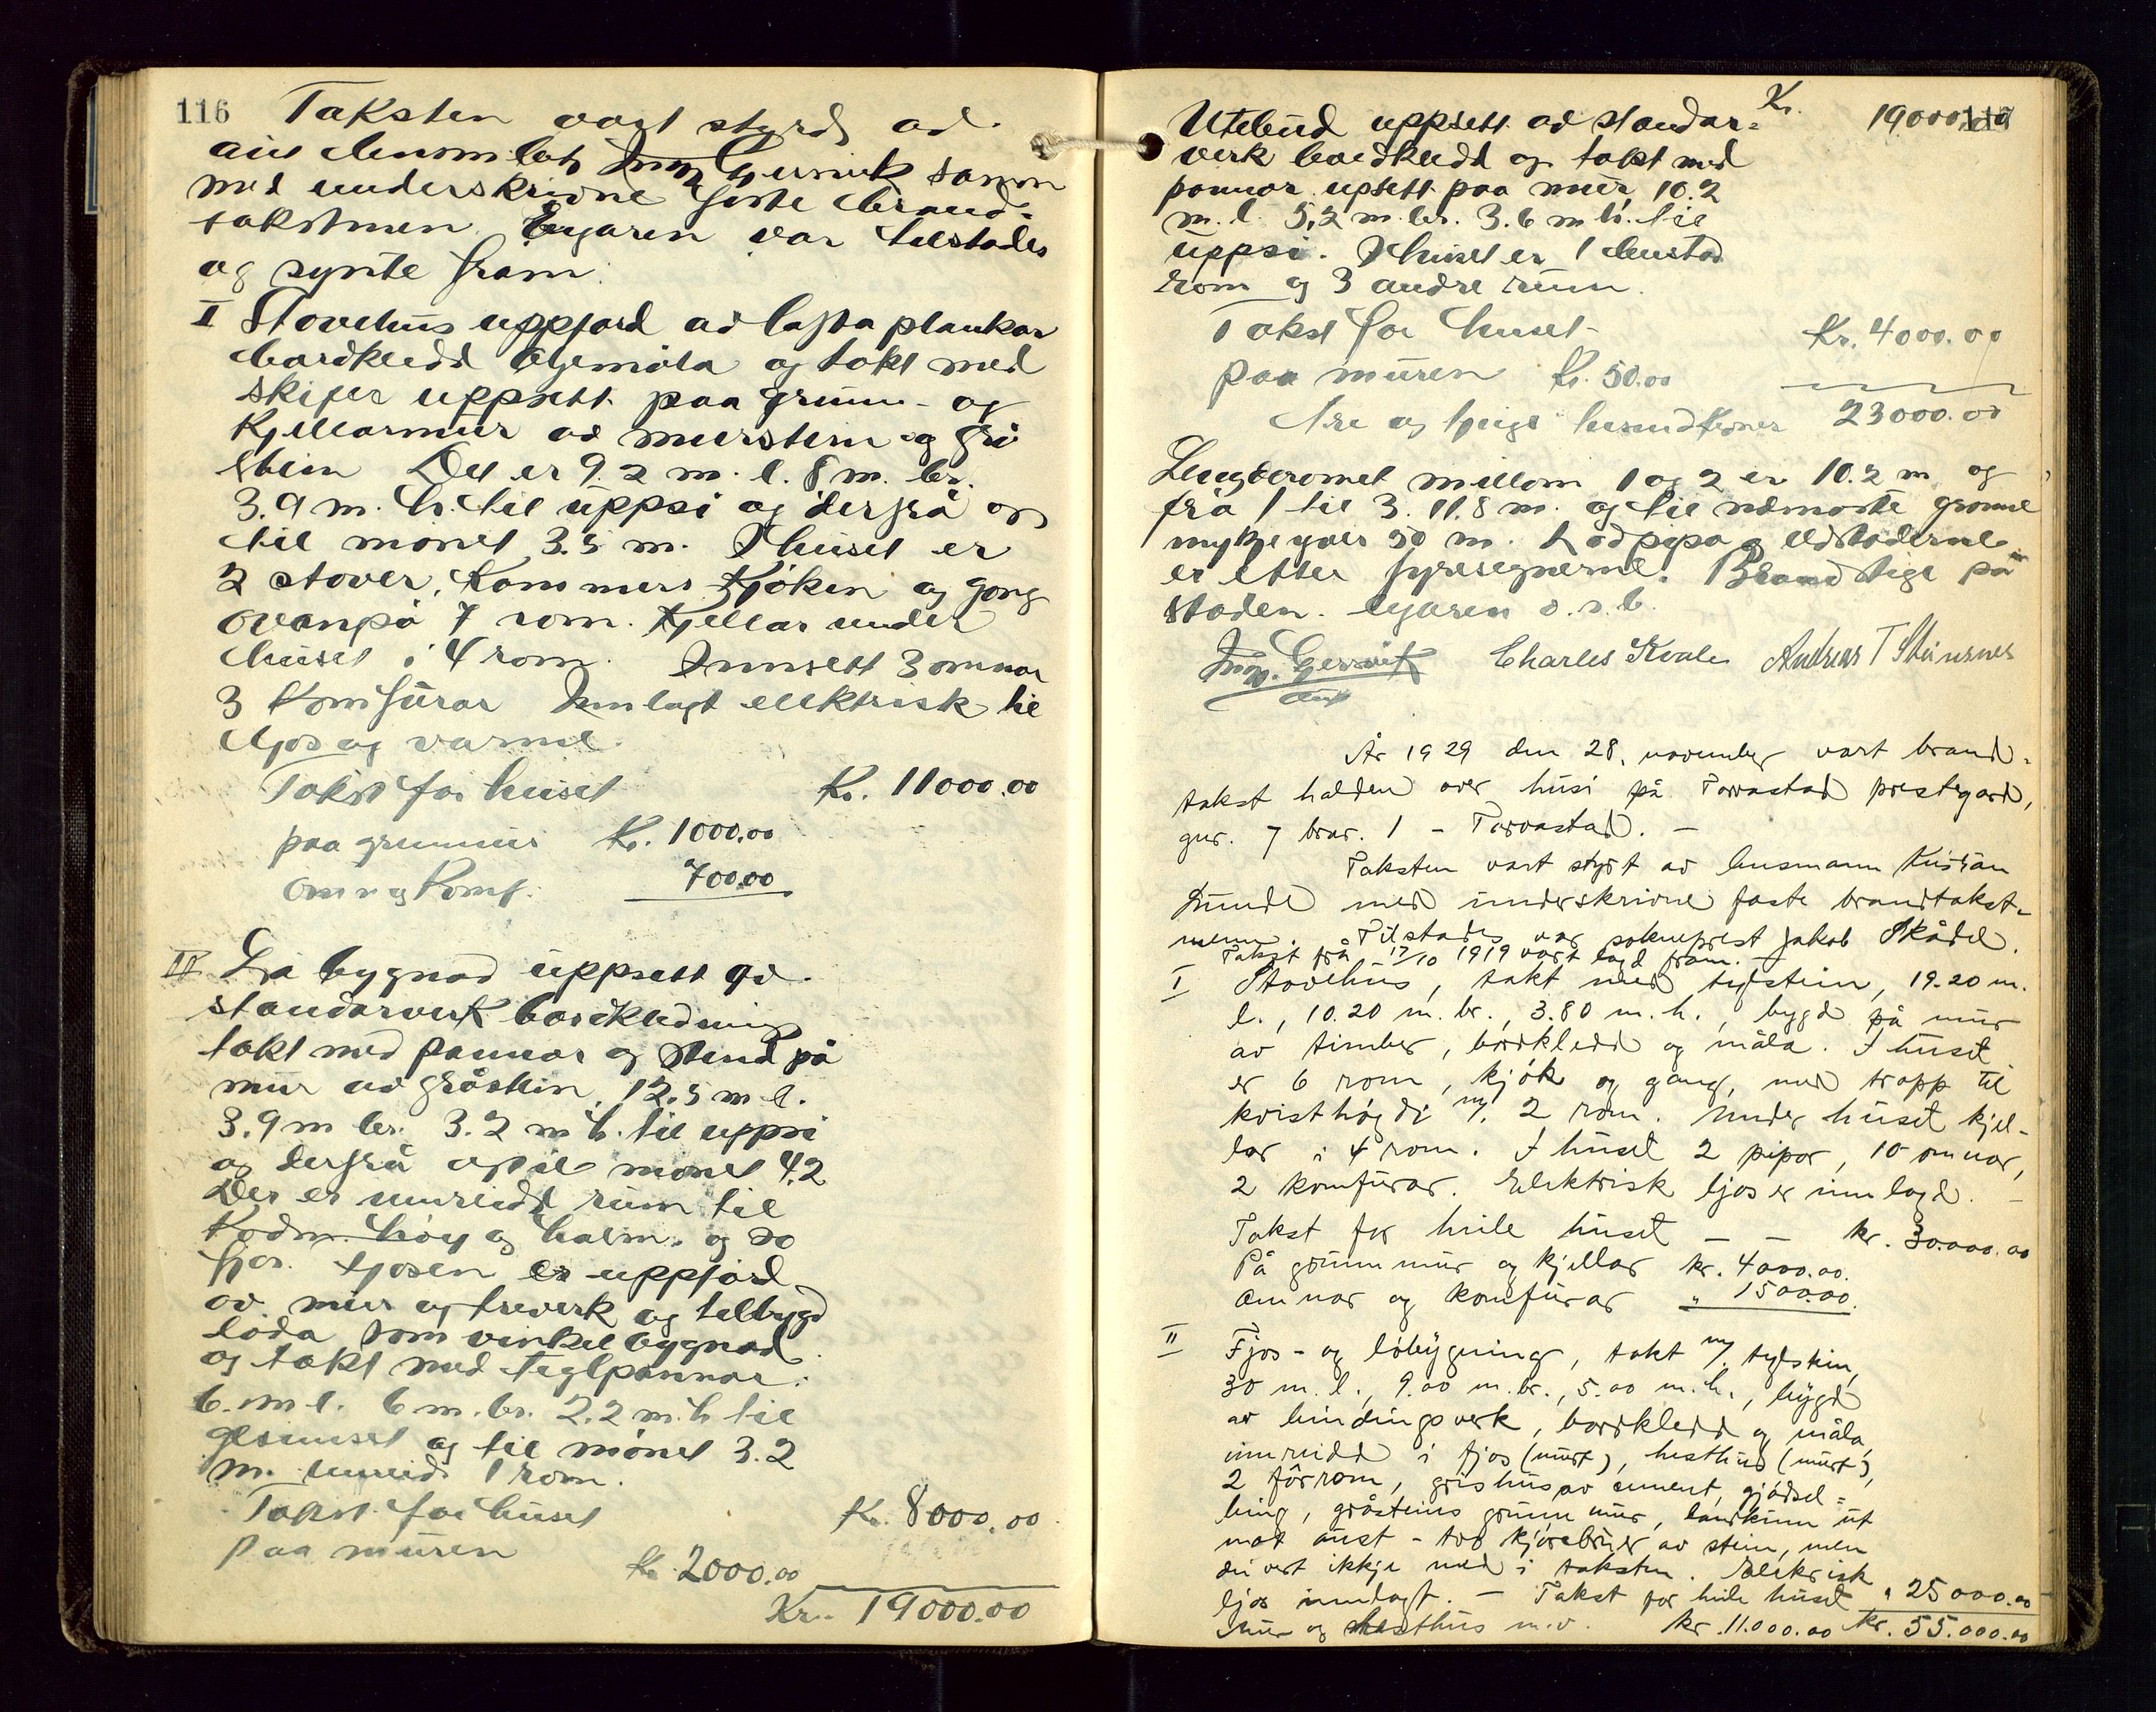 116
Taksten vart styrd av
Ing. Gjersvik saman
med underskrivne faste brand-
takstmen. Eigaren var tilstades
og synte fram.
I Stovehus uppførd av lafta plankar
bordkledd oljemåla og takt med
skifer uppsett paa grunn- og
Kjellarmur av murstein og grå
stein Det er 9.2 m. l. 8 m. br.
3.9 m. h. til uppsi og derfrå op
til mønet 3.5 m. I huset er
2 stover, Kammers Kjøken og gang
ovanpå 7 rom. Kjellar under
huset i 4 rom. Innsett 3 omnar
3 Komfurar Innlagt elektrisk til
ljos og varme.
Takst for huset Kr. 11000.00
paa grunnmur Kr. 1000.00
Omn og Komf. 700.00
II La bygnad uppsett av
standarverk bordkledning
takt med pannar og stend på
mur av gråstein, 12.5 m l.
3.9 m br. 3.2 m h. til uppsi
og derfrå op til mønet 4.2
Der er innreidd rum til
Kodn høy og halm og so
fjos. Fjosen er uppførd
av mur og treverk og tilbygd
løda som vinkelbygnad
og takt med teglpannar.
6. m l. 6 m. br. 2.2 m. h til
gesimset og til mønet 3.2
m. innreid 1 rom.
Takst for huset Kr. 8000.00
paa muren Kr. 2000.00
Kr. 19000.00
Kr. 19000.00 117
Utebud uppsett av standar-
verk bordkledd og takt med
pannar uppsett paa mur, 10.2
m. l. 5,2 m. br. 3.6 m h. til
uppsi. I huset er 1
rom og 3 andre rum.
Takst for huset Kr. 4000.00
paa muren Kr. 50.00
Are og tjuge tusund kronor 23000.00
Lengderomet millom 1 og 2 er 10.2 m og
frå 1 til 3. 11.8 m. og til næmaste granne
mykje yver 50 m. Lodpipa og eldstaderne
er etter fyresegnerne. Brandstige på
staden. Eigaren o.s.b.
Ing. Gjersvik Charles Kvale Andreas T Steinsnes
År 1929 den 28. november vart brand-
takst halden over husi på Torvastad prestegard,
gnr. 7 bnr. 1 - Torvastad. -
Taksten vart styrt av lensmann Kristian
Lunde med underskrivne faste brandtakst-
menn. Tilstades var sokneprest Jakob Skådel.
Takst frå 17/10 1919 vart lagd fram. -
I Stovehus, takt med tiglstein, 19.20 m.
l., 10.20 m. br., 3.80 m. h., bygd på mur
av timber, bordkledd og måla. I huset
er 6 rom, kjøk og gang, med trapp til
kvisthøgdi m/ 2 rom. Under huset kjel-
lar i 4 rom. I huset 2 pipor, 10 omnar,
2 komfurar. Elektrisk ljos er innlagd. -
Takst for heile huset - - kr. 30.000.00
På grunnmur og kjellar kr. 4000.00.
Omnar og komfurar " 1500.00.
II Fjos- og løbygning, takt m/ tiglstein,
30 m. l., 9.00 m. br., 5.00 m. h., bygd
av bindingsverk, bordkledd og måla,
innreidd i fjos (murt), hesthus (murt),
2 fôrrom, grishus av cement, gjødsel-
bing, gråsteins grunnmur, landkinn ut
mot aust - tvo kjørebruer av stein, men
dei vert ikkje med i taksten. Elektrisk
ljos innlagt. - Takst for heile huset " 25000.00
Mur og hesthus m.v. kr. 11.000.00 kr. 55.000.00